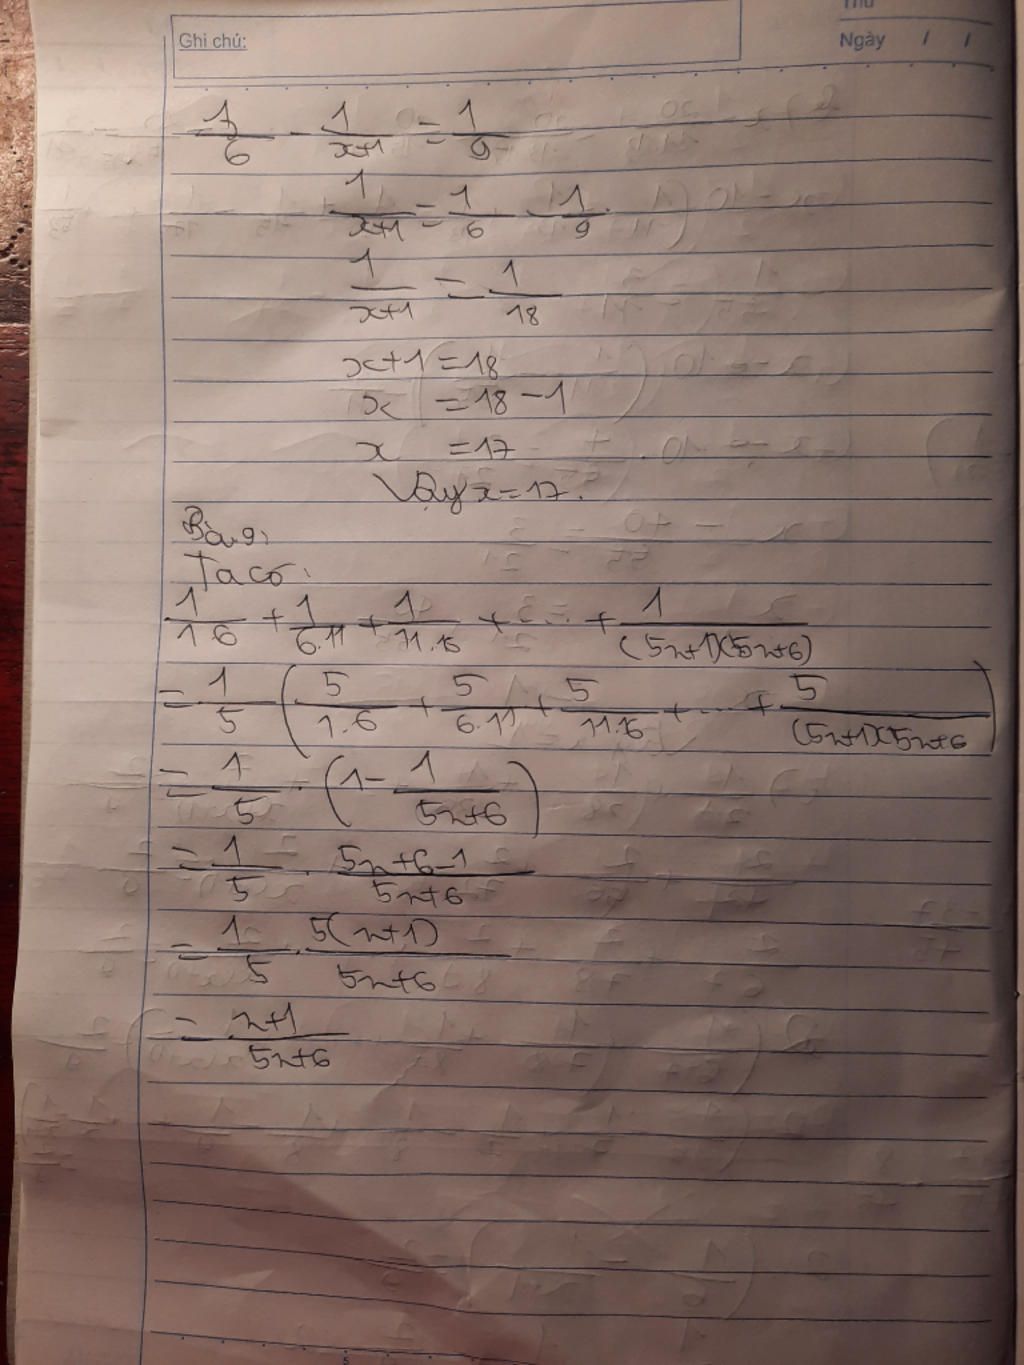 Ghi chú:
Thứ
Ngày / /
1/6 - 1/(x+1) = 1/9
1/(x+1) = 1/6 - 1/9
1/(x+1) = 1/18
x+1 = 18
x = 18 - 1
x = 17
Vậy x = 17.
Bài 9:
Ta có:
1/(1.6) + 1/(6.11) + 1/(11.16) + ... + 1/((5n+1)(5n+6))
= 1/5 (5/(1.6) + 5/(6.11) + 5/(11.16) + ... + 5/((5n+1)(5n+6))
= 1/5 . (1 - 1/(5n+6))
= 1/5 . (5n+6-1)/(5n+6)
= 1/5 . 5(n+1)/(5n+6)
= (n+1)/(5n+6)